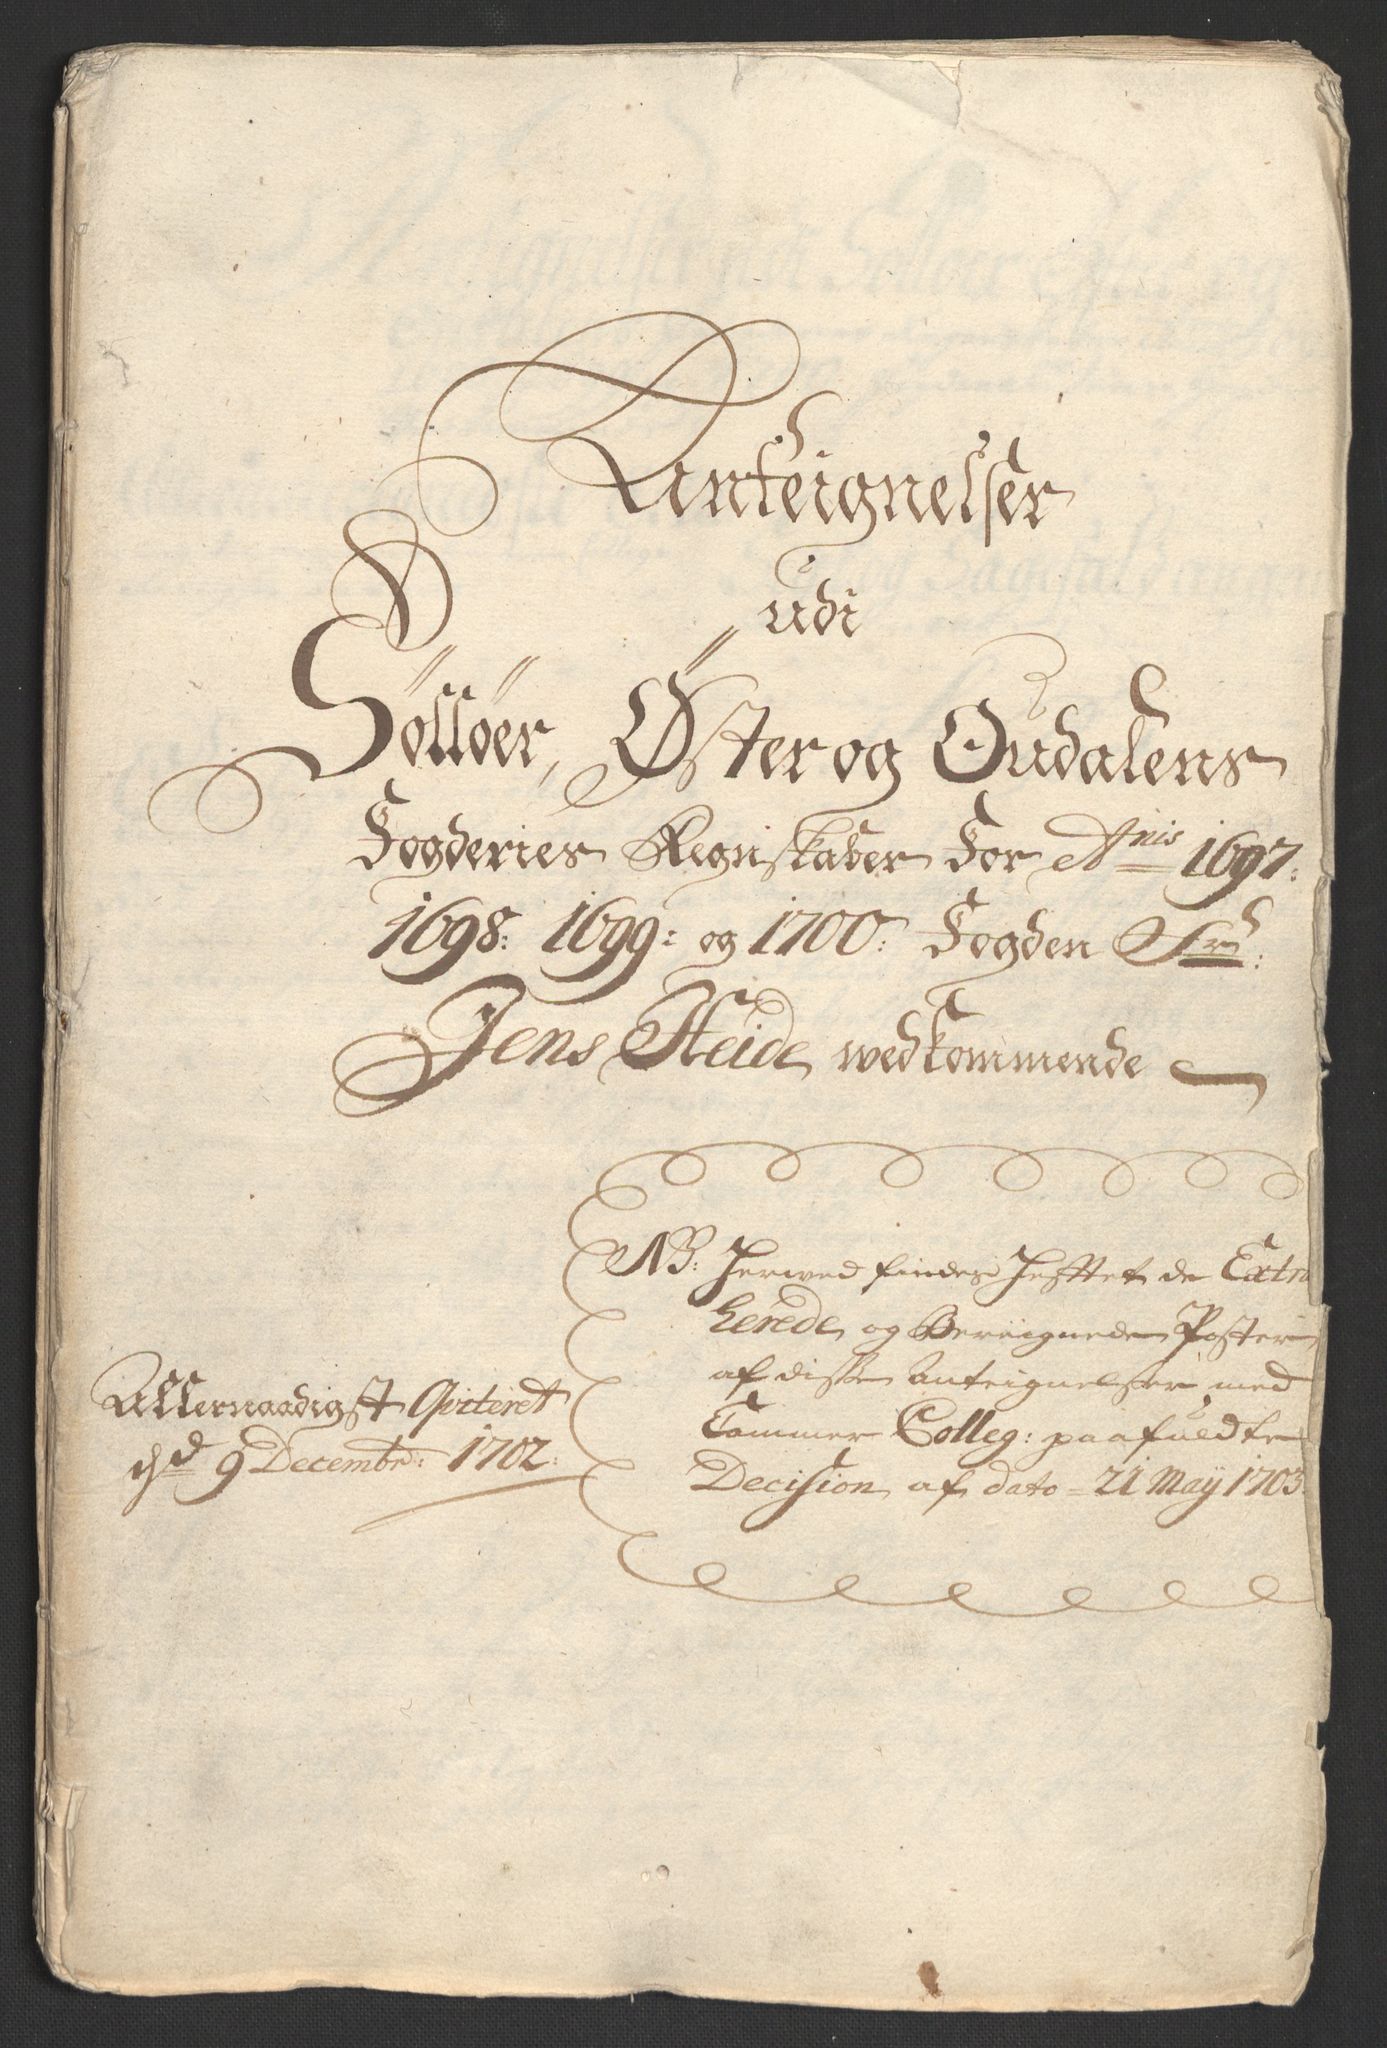 Anteignelser
udi
Solløer, Øster og Oudalens
Fogderies Regnskaber For Anis 1697:
1698: 1699: og 1700: Fogden Sr:
Jens Heide wedkommende
NB: Herwed findes Hefttet de Extra
herede og Bereignede Poster
af disse Anteignelser med
Cammer Colleg: paafuldte
Decision af dato 21 Maÿ 1703.
Allernaadigst Qviteret
d 9 Decembr: 1702.